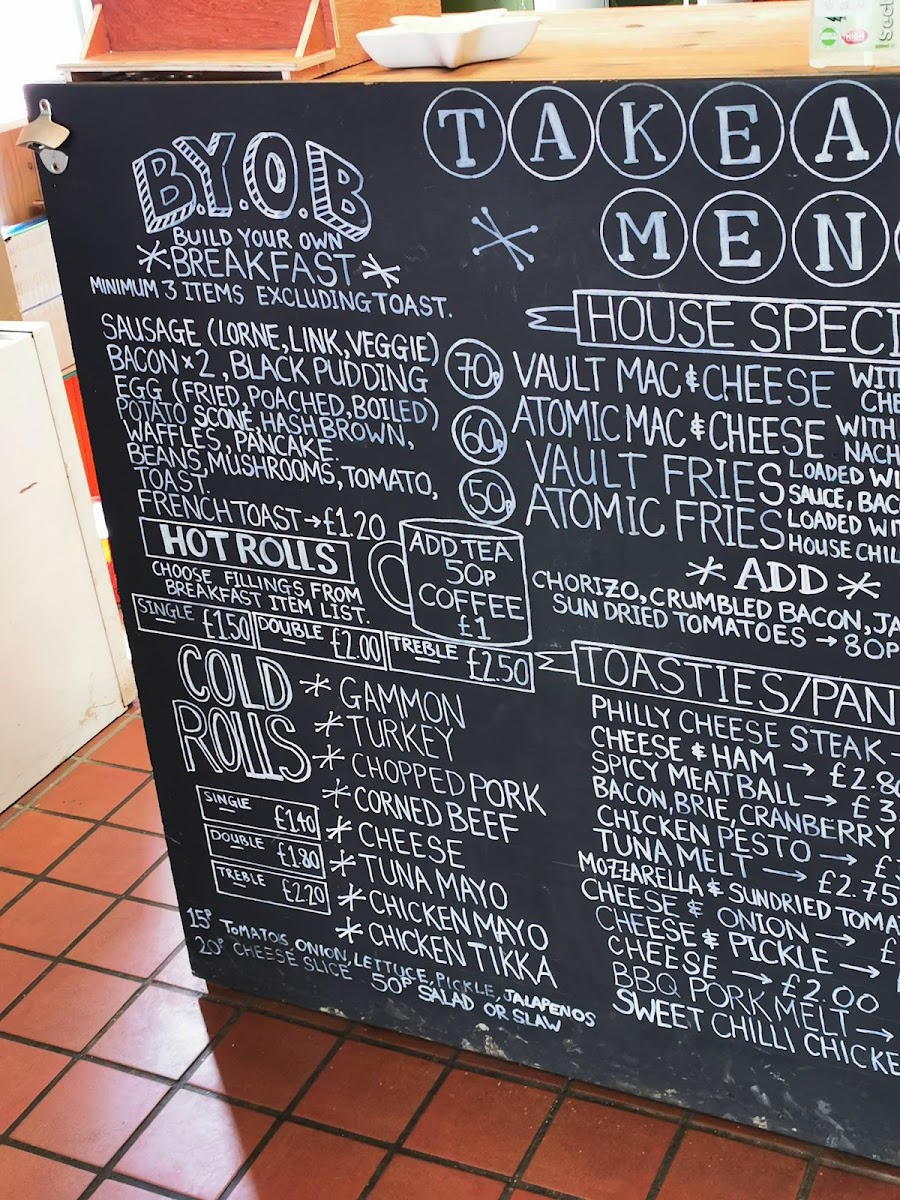 TAKEA
MEN
B.Y.O.B
BUILD YOUR OWN
BREAKFAST
MINIMUM 3 ITEMS EXCLUDING TOAST.
SAUSAGE (LORNE, LINK, VEGGIE)
BACON x2, BLACK PUDDING
70p
EGG (FRIED, POACHED, BOILED)
POTATO SCONE, HASH BROWN,
WAFFLES, PANCAKE.
60p
BEANS, MUSHROOMS, TOMATO,
TOAST.
50p
FRENCH TOAST → £1.20
HOT ROLLS
CHOOSE FILLINGS FROM
BREAKFAST ITEM LIST.
SINGLE £1.50 DOUBLE £2.00 TREBLE £2.50
ADD TEA
50P
COFFEE
£1
COLD
ROLLS
GAMMON
TURKEY
CHOPPED PORK
CORNED BEEF
CHEESE
TUNA MAYO
CHICKEN MAYO
CHICKEN TIKKA
SINGLE £1.40
DOUBLE £1.80
TREBLE £2.20
15P TOMATOS, ONION, LETTUCE, PICKLE, JALAPENOS
20P CHEESE SLICE
50P SALAD OR SLAW
HOUSE SPECI
VAULT MAC & CHEESE WIT
CHE
ATOMIC MAC & CHEESE WITH
NACH
VAULT FRIES LOADED WI
SAUCE, BAC
ATOMIC FRIES LOADED WIT
HOUSE CHIL
ADD
CHORIZO, CRUMBLED BACON, JA
SUN DRIED TOMATOES → 80P
TOASTIES/PAN
PHILLY CHEESE STEAK
CHEESE & HAM → £2.80
SPICY MEATBALL → £3
BACON, BRIE, CRANBERRY
CHICKEN PESTO → £3
TUNA MELT → £2.75
MOZZARELLA & SUNDRIED TOMAT
CHEESE & ONION → £
CHEESE & PICKLE →
CHEESE → £2.00
BBQ PORK MELT →
SWEET CHILLI CHICKE